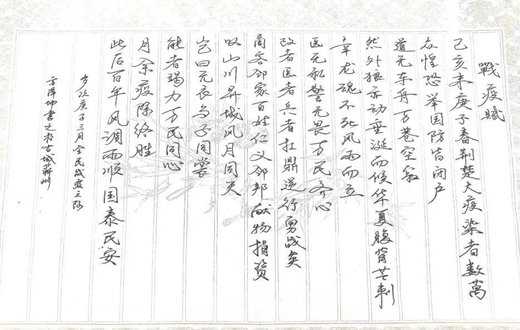 戰疫賦
己亥末庚子春荆楚大疫染者数萬
众惶恐举国防皆闭户
道无车舟万巷空寂
然外狼亦动垂涎而候华夏腹背芒刺
幸龙魂不死风雨而立
医无私警无畏万民齐心
政者医者兵者扛鼎逆行勇战矣
商客邻家百姓仁义邻邦献物捐资
以山川异域风月同天
岂曰无衣与子同裳
能者竭力万民同心
月余疫除终胜
此后百年风调雨顺国泰民安
岁次庚子三月全民战疫之际
书之于古城